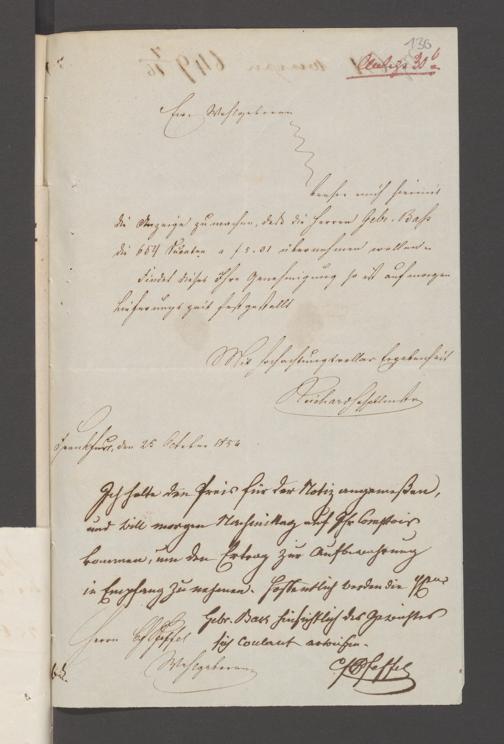 136
Anlage 30 b
Euer Wohlgeboren
beehre mich hiermit
die Anzeige zu machen, daß die Herren Gebr. Bass
die 654 Ducaten a f 5.01 übernehmen wollen.
Findet dieses Ihre Genehmigung so ist auf morgen
Lieferungszeit festgestellt
Mit hochachtungsvoller Ergebenheit
Frankfurt, den 25 October 1854
Ich halte den Preis für der Notiz angemeßen,
und will morgen Nachmittag auf Ihr Comptoir
kommen, um den Ertrag zur Aufbewahrung
in Empfang zu nehmen. Hoffentlich werden die Herren
Gebr. Bass hinsichtlich des Gewichtes
sich coulant erweisen.
Herrn Pfeffel
Wohlgeboren
Pfeffel